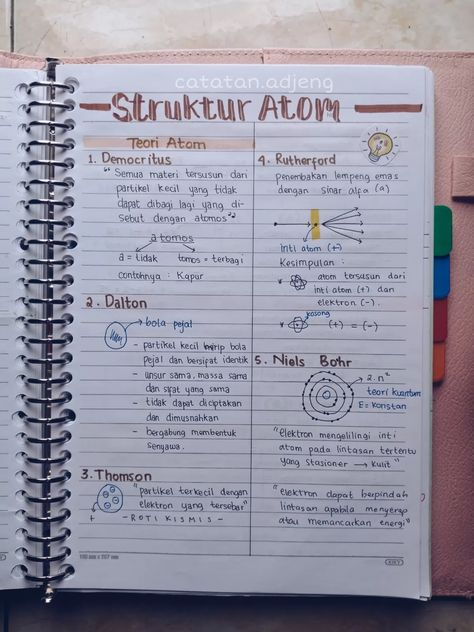 catatan.adjeng
Struktur Atom
Teori Atom
1. Democritus
"Semua materi tersusun dari
partikel kecil yang tidak
dapat dibagi lagi yang di-
sebut dengan atomos"
atomos
a = tidak tomos = terbagi
contohnya : Kapur
2. Dalton
bola pejal
- partikel kecil mirip bola
pejal dan bersifat identik
- unsur sama, massa sama
dan sifat yang sama
- tidak dapat diciptakan
dan dimusnahkan
- bergabung membentuk
senyawa.
3. Thomson
"partikel terkecil dengan
elektron yang tersebar"
+ - ROTI KISMIS -
100 mm x 207 mm
4. Rutherford
penembakan lempeng emas
dengan sinar alfa (a)
inti atom (+)
Kesimpulan :
atom tersusun dari
inti atom (+) dan
elektron (-).
kosong
(+) = (-)
5. Niels Bohr
2.n²
teori kuantum
E = konstan
"elektron mengelilingi inti
atom pada lintasan tertentu
yang stasioner → kulit"
"elektron dapat berpindah
lintasan apabila menyerap
atau memancarkan energi"